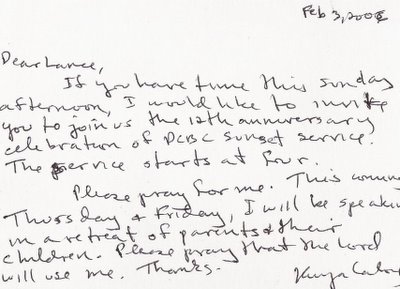 Feb 3, 2006
Dear Lance,
If you have time this sunday
afternoon, I would like to invite
you to join us the 12th anniversary
celebration of DCBC sunset service.
The service starts at four.
Please pray for me. This coming
Thursday & Friday, I will be speakin
in a retreat of parents & their
children. Please pray that the Lord
will use me. Thanks.